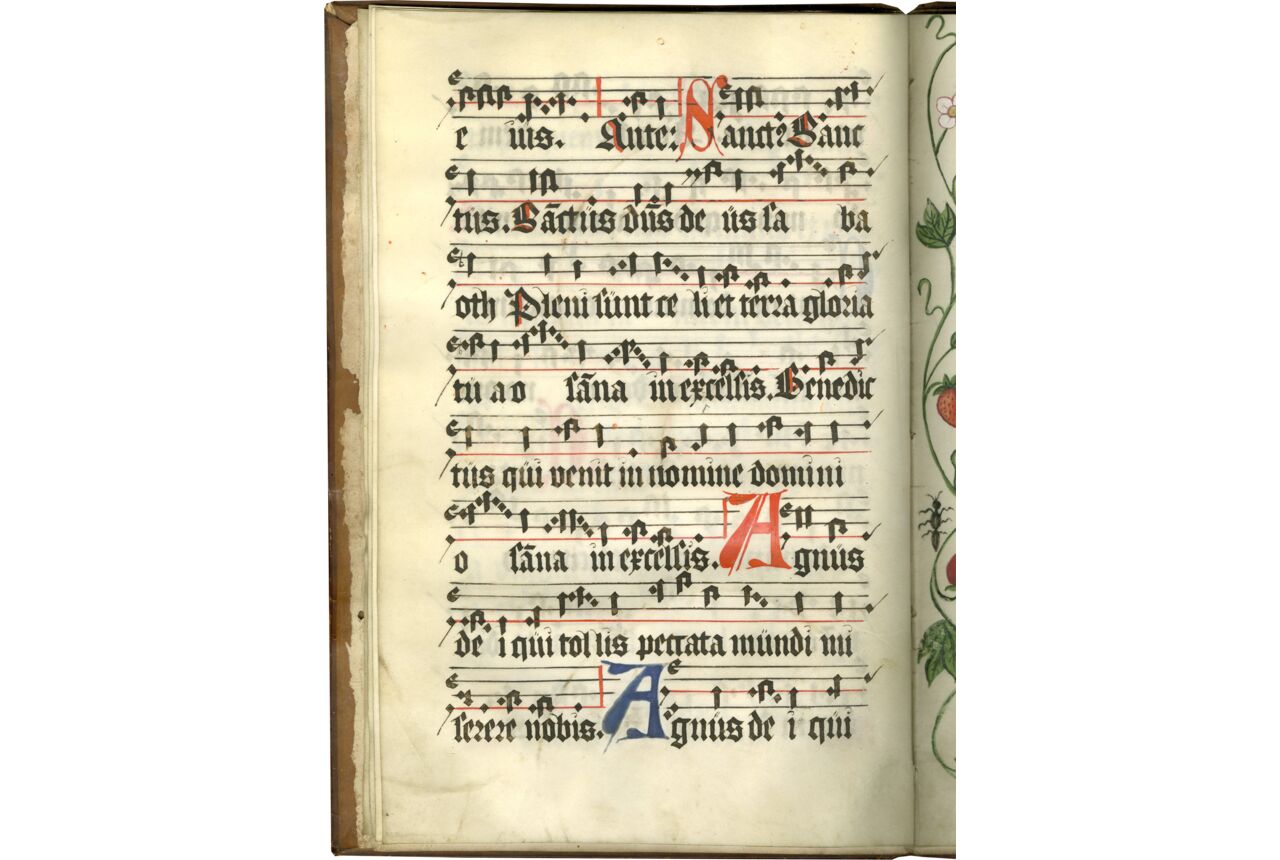 e iüs. Aute: Sanct9 Sanc
tus. Sāctüs dn̄s de üs sa ba
oth Pleni sunt ce li et terra gloria
tu a o sāna in excelsis. Benedic
tüs qui venit in nomine domini
o sāna in excelsis. Agnüs
de i qui tol lis peccata mündi mi
serere nobis. Agnüs de i qui